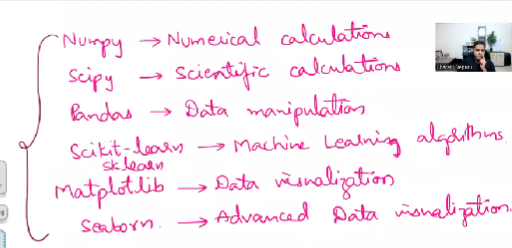 Numpy → Numerical calculations
Scipy → Scientific calculations
Pandas → Data manipulation
Scikit-learn → Machine Learning algorithms
sklearn
Matplotlib → Data visualization
Seaborn. → Advanced Data visualization.